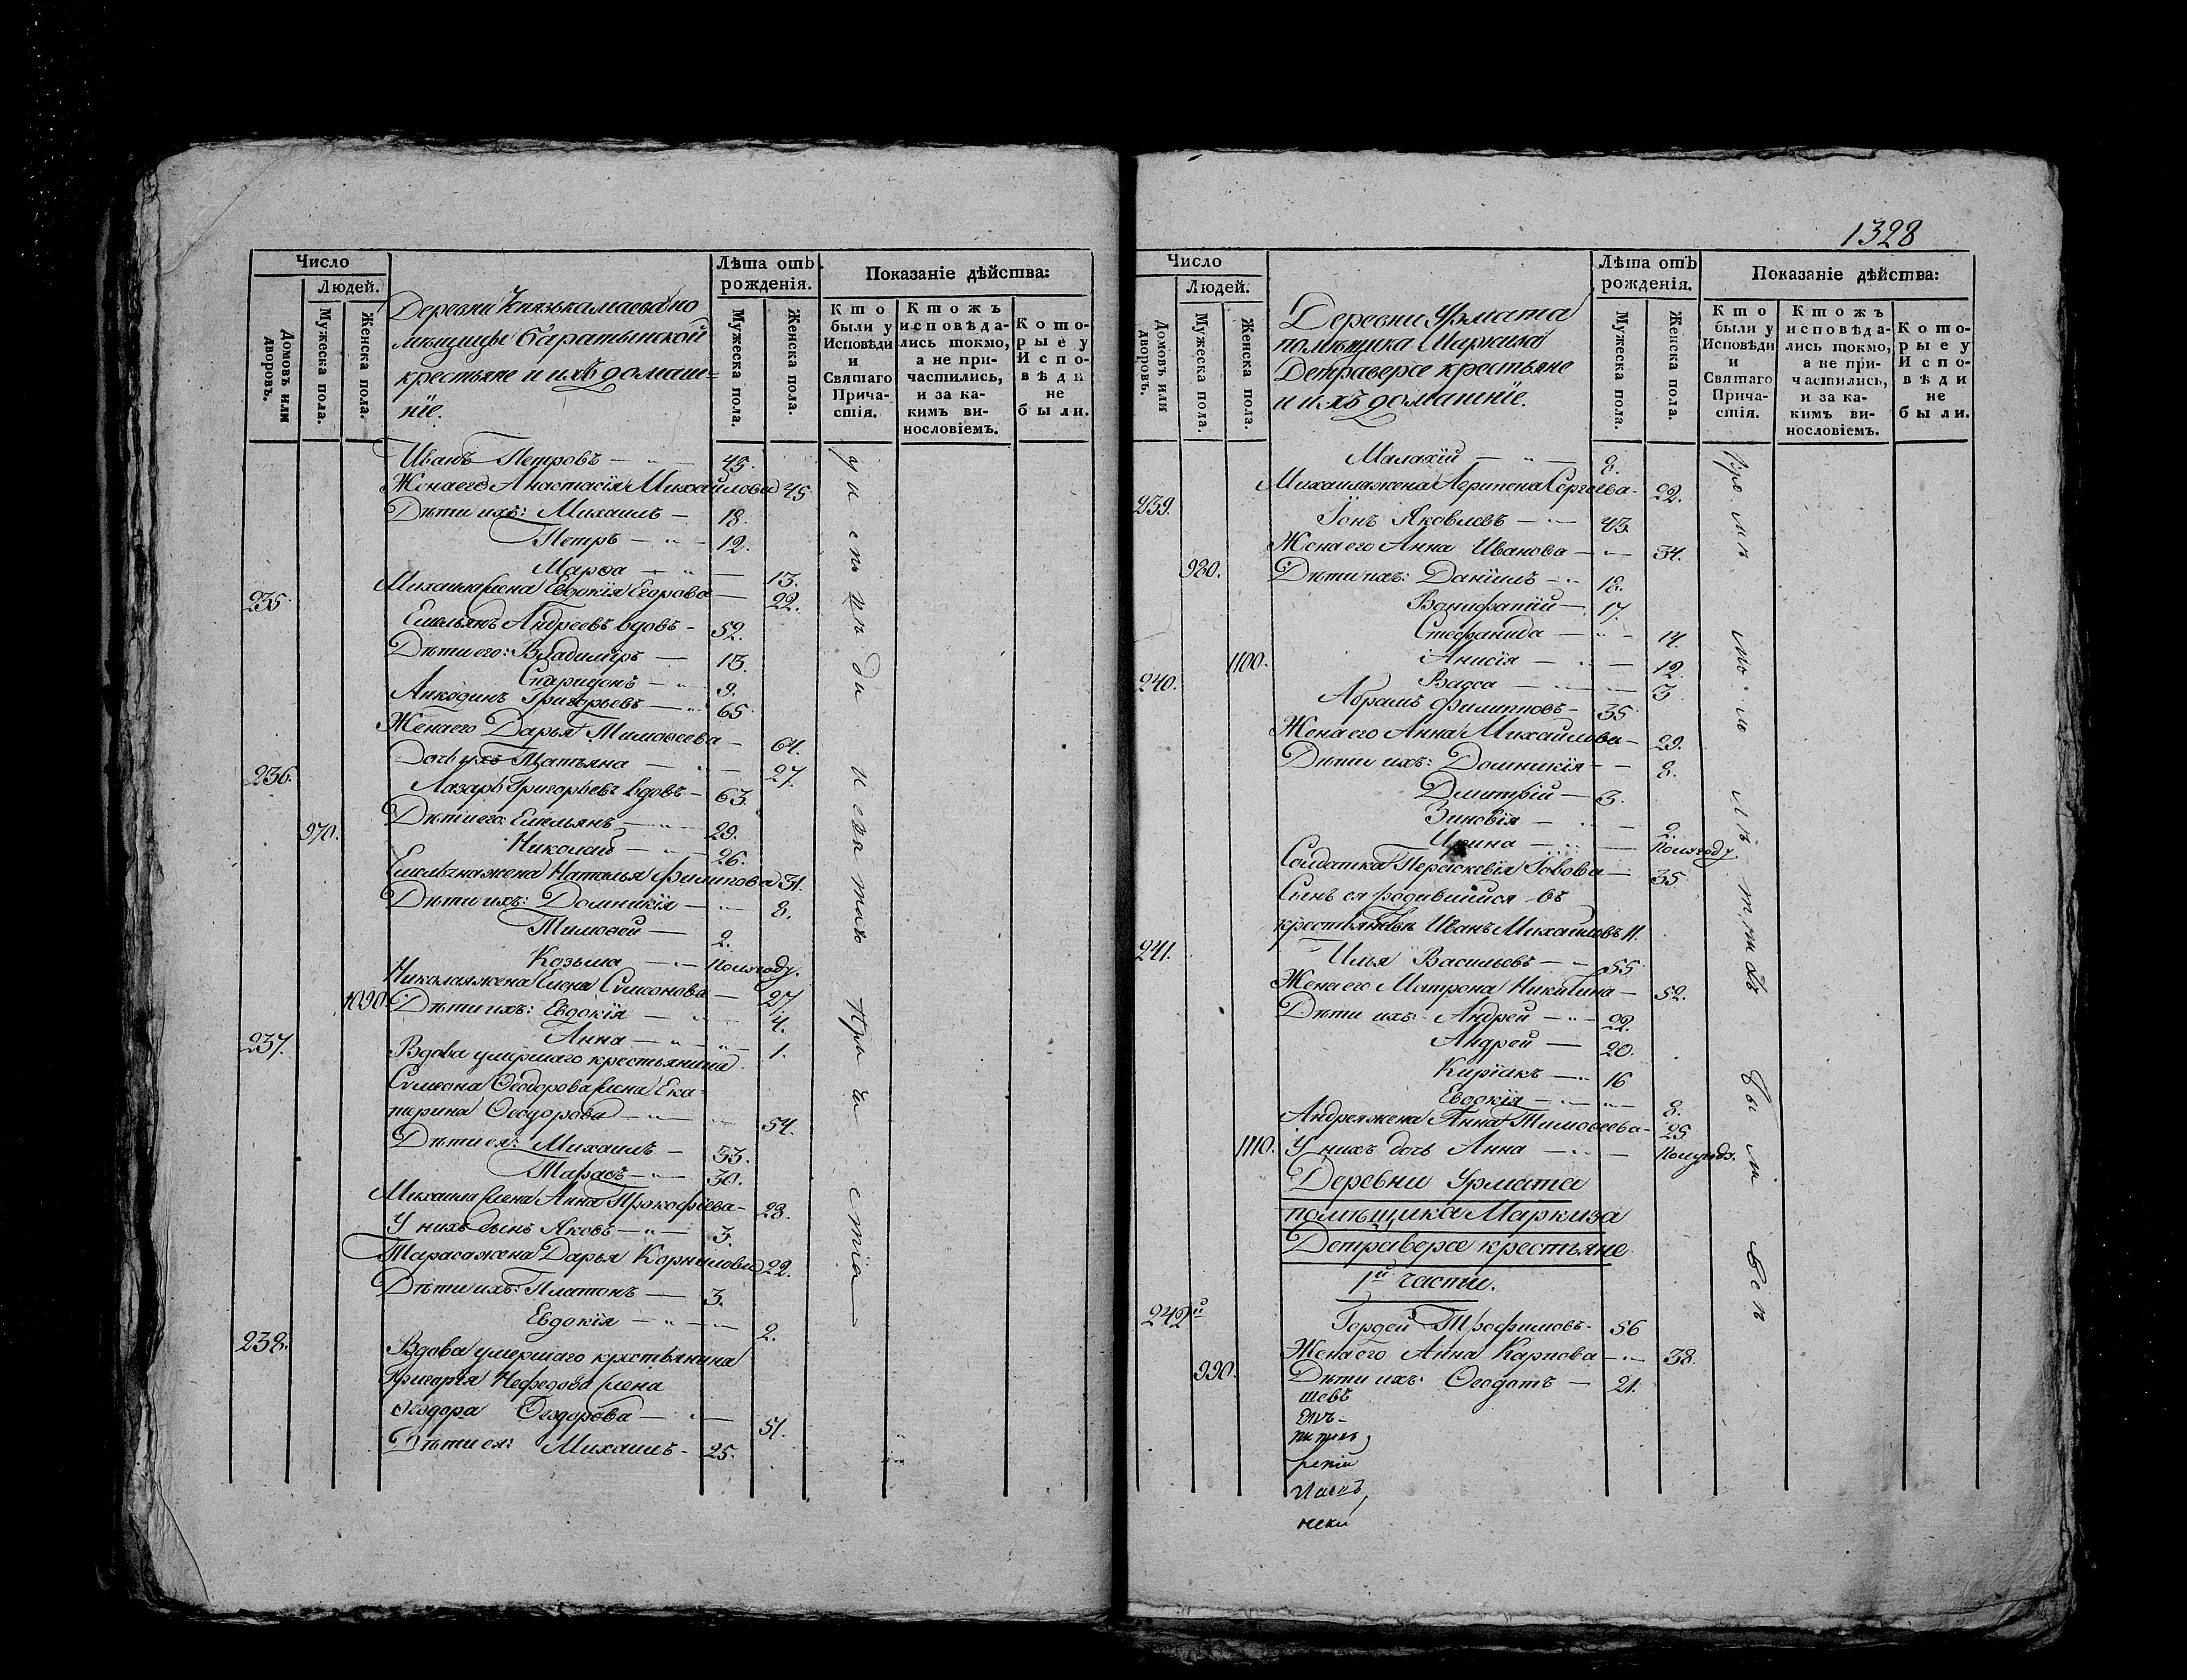 Число
Людей.
Домовъ или дворовъ.
Мужеска пола.
Женска пола.
Деревни Князькамаева по
мѣщицы Баратынской
крестьяне и ихъ домаш=
нїе.
Лѣта отъ рожденія.
Мужеска пола.
Женска пола.
Показаніе дѣйства:
Кто были у Исповѣди и Святаго Причастія.
Ктожъ исповѣдались токмо, а не причастились, и за какимъ винословіемъ.
Которые у Исповѣди не были.
Иванъ Петровъ — 45.
Жена его Анастасїя Михайлова 45.
Дѣти ихъ: Михаилъ — 18.
Петръ — 12.
Марѳа — 13.
Михаила жена Евдокїя Егорова — 22.
235. Емельянъ Андреевъ вдовъ — 52.
Дѣти его: Владимїръ — 13.
Спиридонъ — 9.
Григорьевъ — 65.
Жена его Дарья Тимоѳеева — 64.
Дочь ихъ Татьяна — 27.
236. Лазарь Григорьевъ вдовъ — 63.
970. Дѣти его: Емельянъ — 29.
Николай — 26.
жена Наталья Филипова 31.
Дѣти ихъ: Домникїя — 8.
Тимоѳей — 2.
Козьма — полгоду.
Николая жена Елена Сѵмеонова — 27.
1090. Дѣти ихъ: Евдокїя — 4.
Анна — 1.
237. Вдова умершаго крестьянина
Сѵмеона Ѳеодорова жена Ека-
терина Ѳеодорова — 54.
Дѣти ея: Михаилъ — 33.
Тарасъ — 30.
Михаила жена Анна Прокофїева — 28.
У нихъ сынъ Яковъ — 3.
Тараса жена Дарья Корнилова 22.
Дѣти ихъ: Платонъ — 3.
Евдокїя — 2.
238. Вдова умершаго крестьянина
Григорїя Нефедова жена
Ѳеодора Ѳеодорова — 51.
Дѣти ея: Михаилъ — 25.
у исповѣди и святаго причастїя
1328
Число
Людей.
Домовъ или дворовъ.
Мужеска пола.
Женска пола.
Деревни Урмата
помѣщика Маркиза
Детраверсе крестьяне
и ихъ домашнїе.
Лѣта отъ рожденія.
Мужеска пола.
Женска пола.
Показаніе дѣйства:
Кто были у Исповѣди и Святаго Причастія.
Ктожъ исповѣдались токмо, а не причастились, и за какимъ винословіемъ.
Которые у Исповѣди не были.
Малахїй — 8.
Михаила жена Агрипена Сергеева — 22.
239. Їонъ Яковлевъ — 43.
Жена его Анна Иванова — 34.
980. Дѣти ихъ: Данїилъ — 18.
Вонифатїй — 17.
Стефанида — 14.
1100. Анисїя — 12.
Васса — 3
240. Абрамъ Филипповъ — 35
Жена его Анна Михайлова — 29.
Дѣти ихъ: Домникїя — 8.
Дмитрїй — 3.
Зиновїя — 2.
Ирина — полгоду
Солдатка Пераскевїя Їовова — 35
Сынъ ея родившїйся въ
крестьянствѣ Иванъ Михайловъ 11.
241. Илья Васильевъ — 55
Жена его Матрона Никитина — 52.
Дѣти ихъ: Андрей — 22.
Андрей — 20.
Кирїакъ — 16
Евдокїя — 8.
Андрея жена Анна Тимоѳеева — 25
1110. У нихъ дочь Анна — полгода.
Деревни Урмата
помѣщика Маркиза
Детраверсе крестьяне
1й части.
242й Гордей Трофимовъ — 56
Жена его Анна Карпова — 38.
990. Дѣти ихъ: Ѳеодотъ — 21.